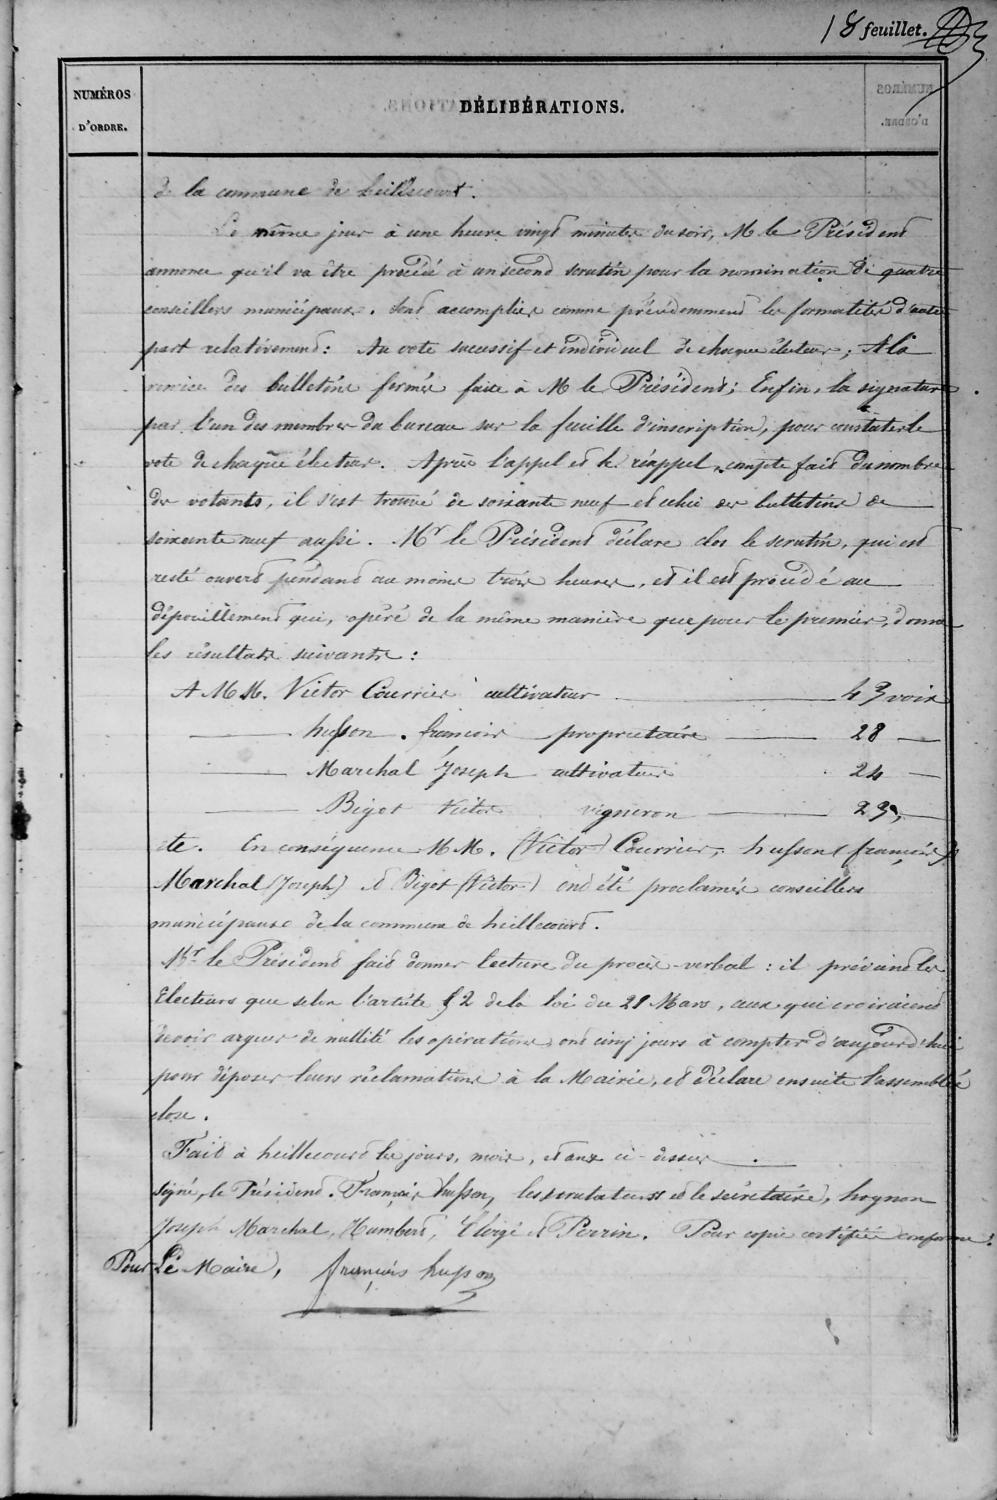 18 feuillet.
NUMÉROS
D'ORDRE.
DÉLIBÉRATIONS.
de la commune de heillecourt.
Le même jour à une heure vingt minutes du soir, M le Président
annonce qu'il va être procédé à un second scrutin pour la nomination de quatre
conseillers municipaux. Sont accomplies comme précédemment les formalités d'autre
part relativement: Au vote successif et individuel de chaque électeur; A la
remise des bulletins fermés faite à M le Président; Enfin, la signature
par l'un des membres du bureau sur la feuille d'inscription, pour constater le
vote de chaque électeur. Après l'appel et le réappel, compte fait du nombre
de votants, il s'est trouvé de soixante neuf et celui des bulletins de
soixante neuf aussi. Mr le Président déclare clos le scrutin, qui est
resté ouvert pendant au moins trois heures, et il est procédé au
dépouillement qui, opéré de la même manière que pour le premier, donna
les résultats suivants:
A MM. Victor Courrier cultivateur 43 voix
husson françois propriétaire 28
Marchal Joseph cultivateur 24
Bigot Victor vigneron 23,
etc. En conséquence MM. (Victor) Courrier, husson (françois)
Marchal (Joseph) et Bigot (Victor) ont été proclamés conseillers
municipaux de la commune de heillecourt.
Mr le Président fait donner lecture du procès-verbal: il prévient les
Electeurs que selon l'article 52 de la loi du 21 Mars, ceux qui croiraient
devoir arguer de nullité les opérations, ont cinq jours à compter d'aujourd'hui
pour déposer leurs réclamations à la Mairie, et déclare ensuite l'assemblée
close.
Fait à heillecourt les jours, mois, et ans ci-dessus.
signé, le Président. François husson, les scrutateurs et le secrétaire, hognon
Joseph Marchal, Humbert, Eloigé et Perrin. Pour copie certifiée conforme.
Pour Le Maire, françois husson